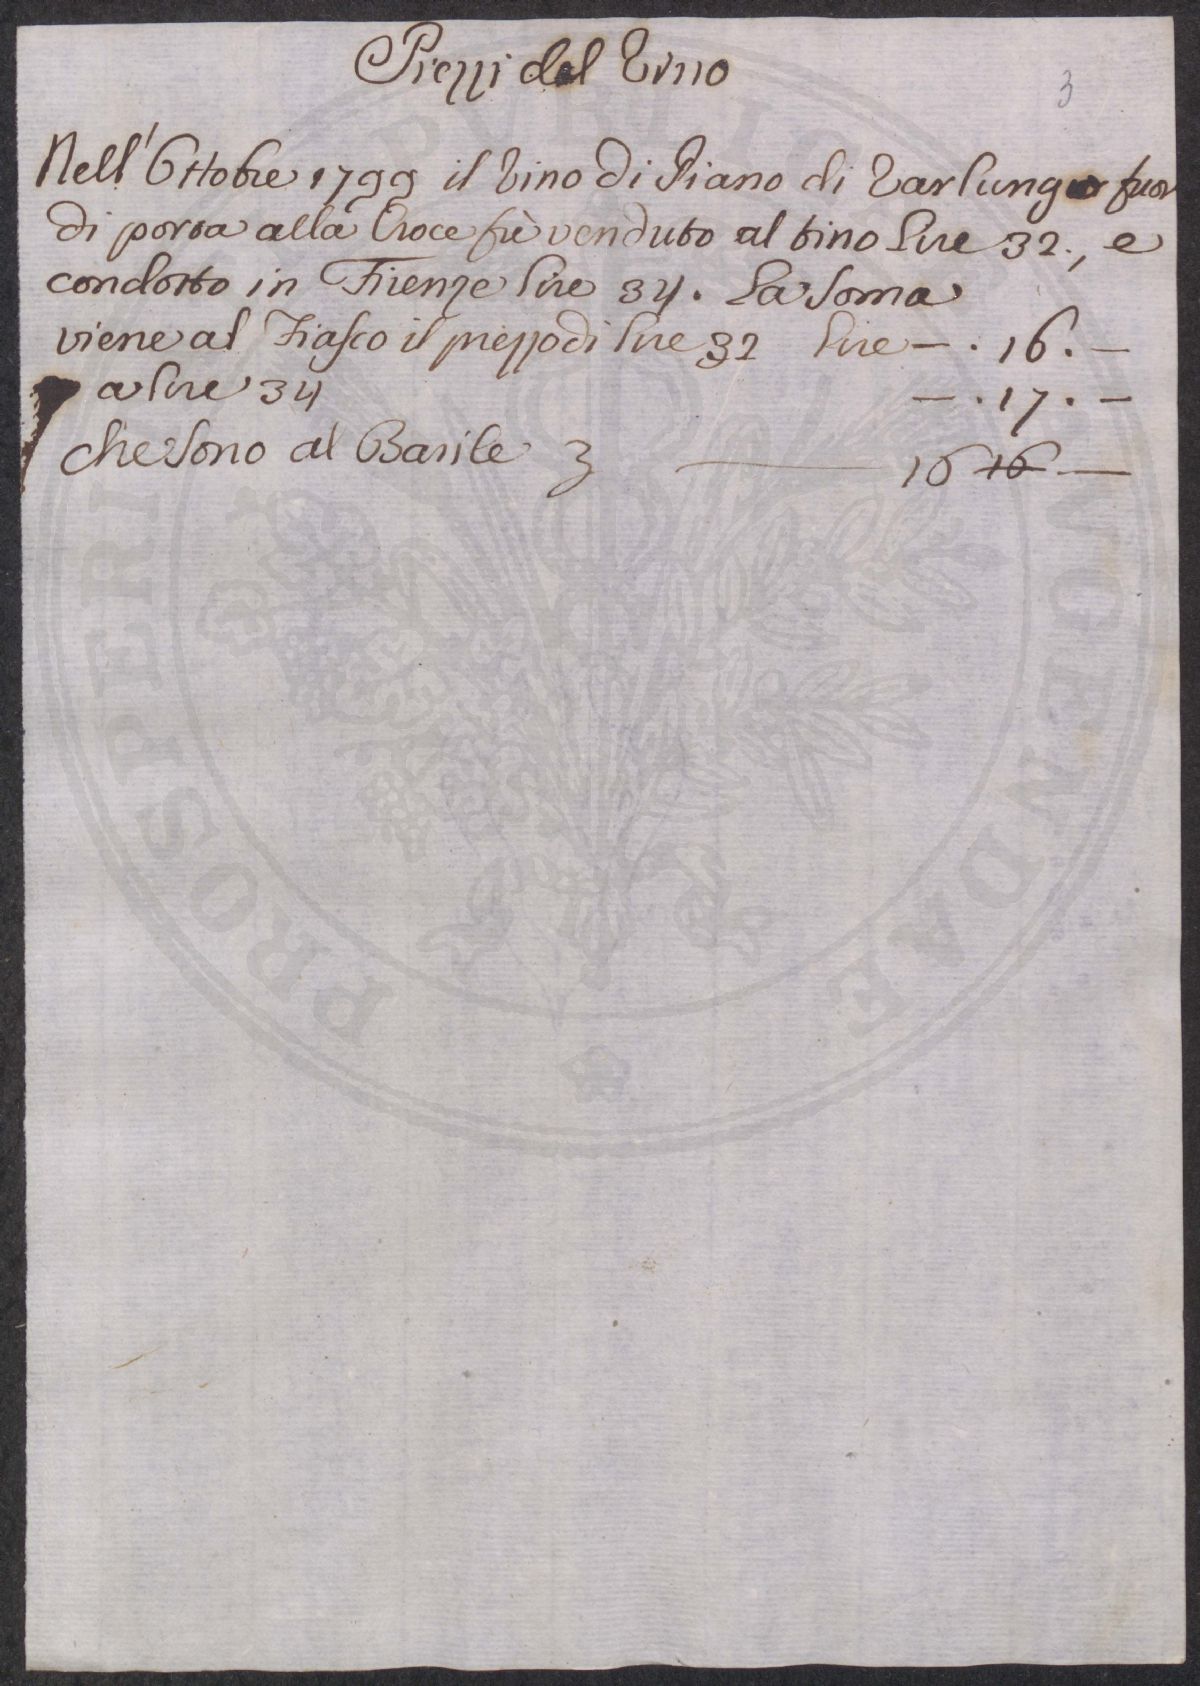 Prezzi del Vino
3
Nell' Ottobre 1799 il Vino di Piano di Varlungo fuor
di porta alla Croce fù venduto al tino lire 32., e
condotto in Firenze lire 34. La Soma
viene al Fiasco il prezzo di lire 32 lire —. 16. —
a lire 34 —. 17. —
che sono al Barile 16 16 —
PROSPERITATI PUBLICAE AUGENDAE